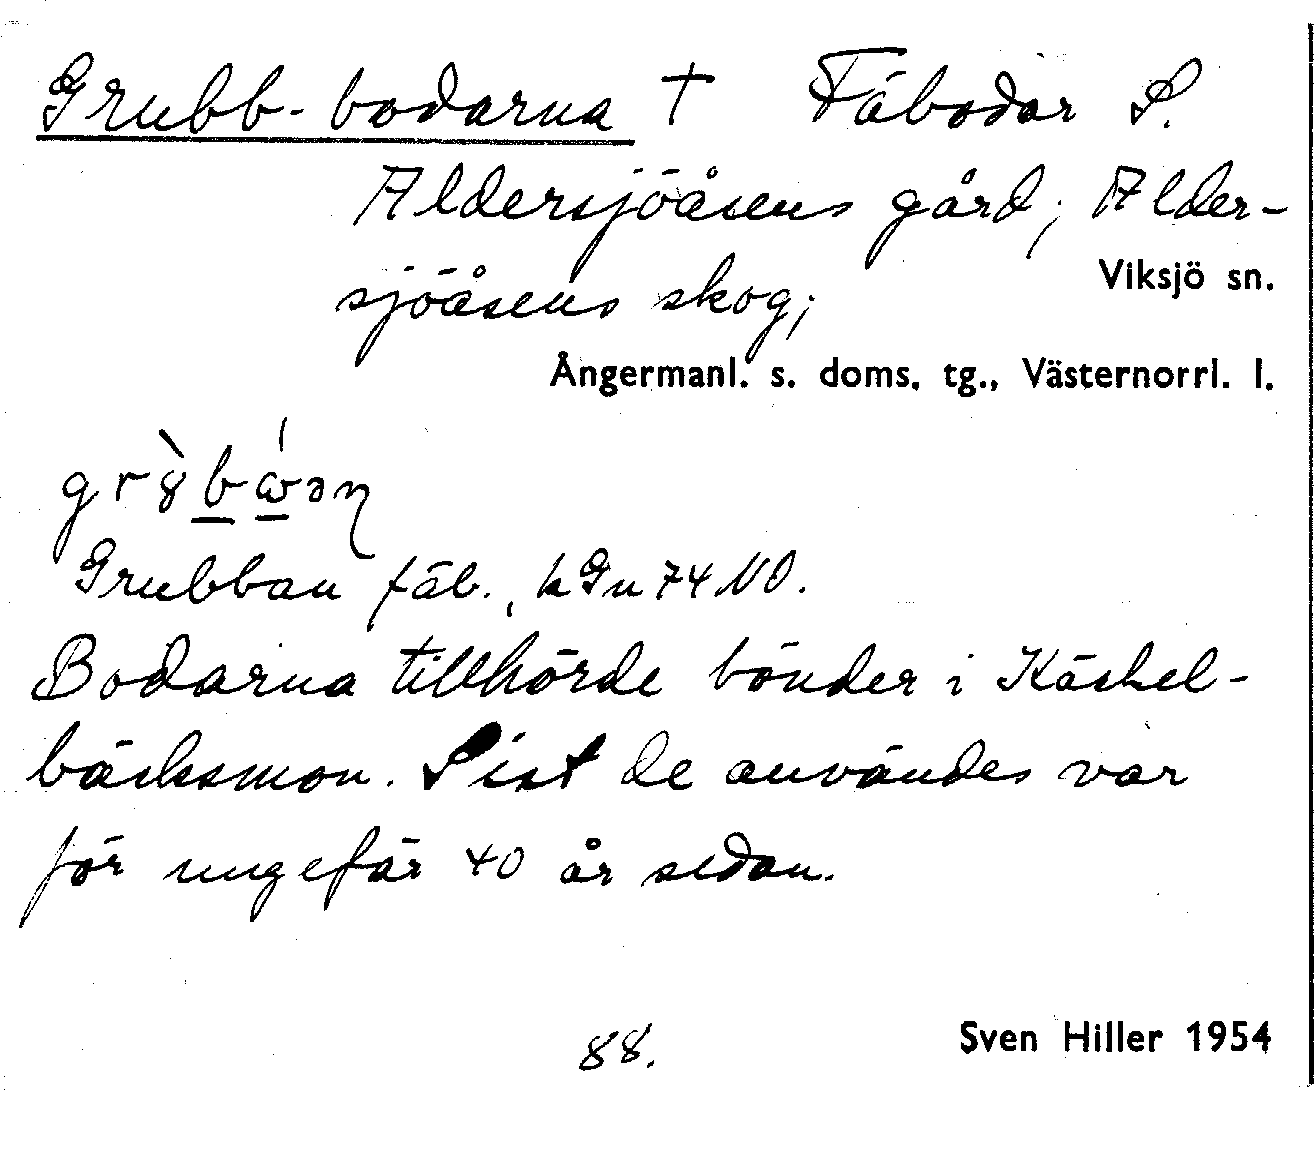 Grubb-bodarna † Fäbodar S.
Aldersjöåsens gård; Alder-
sjöåsens skog;
Viksjö sn.
Ångermanl. s. doms. tg., Västernorrl. l.
Grubban fäb., kGn 74 NO.
Bodarna tillhörde bönder i Käckel-
bäcksmon. Sist de användes var
för ungefär 40 år sedan.
88.
Sven Hiller 1954